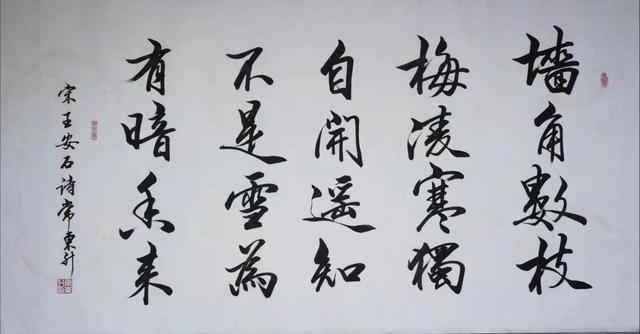 墙角數枝
梅凌寒獨
自開遥知
不是雪為
有暗香来
宋王安石诗常東升